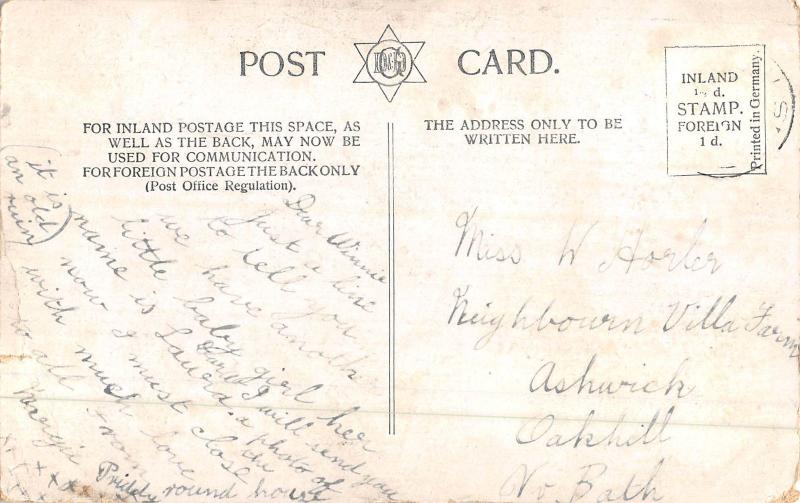 POST CARD.
FOR INLAND POSTAGE THIS SPACE, AS
WELL AS THE BACK, MAY NOW BE
USED FOR COMMUNICATION.
FOR FOREIGN POSTAGE THE BACK ONLY
(Post Office Regulation).
THE ADDRESS ONLY TO BE
WRITTEN HERE.
INLAND
d.
STAMP.
FOREIGN
1 d.
Printed in Germany.
Dear Winnie
Just a line
to tell you
we have another
little baby girl her
name is
now I must close
with much love
to all from
Margie
x x x x
I will send you
a photo of
the
Priddy round house
(it is
an old
ruin)
Miss W Horler
Neighbourn Villa Farm
Ashwick
Oakhill
Nr Bath